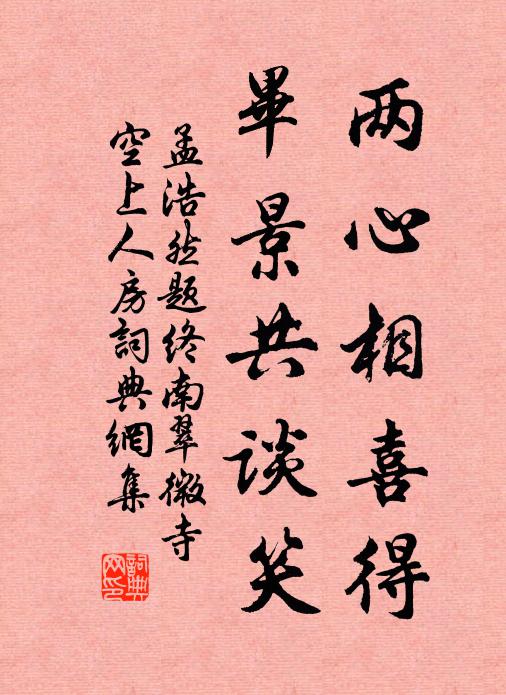 两心相喜得
畢景共谈笑
孟浩然题终南翠微寺
空上人房詞典網集
詞典
网印